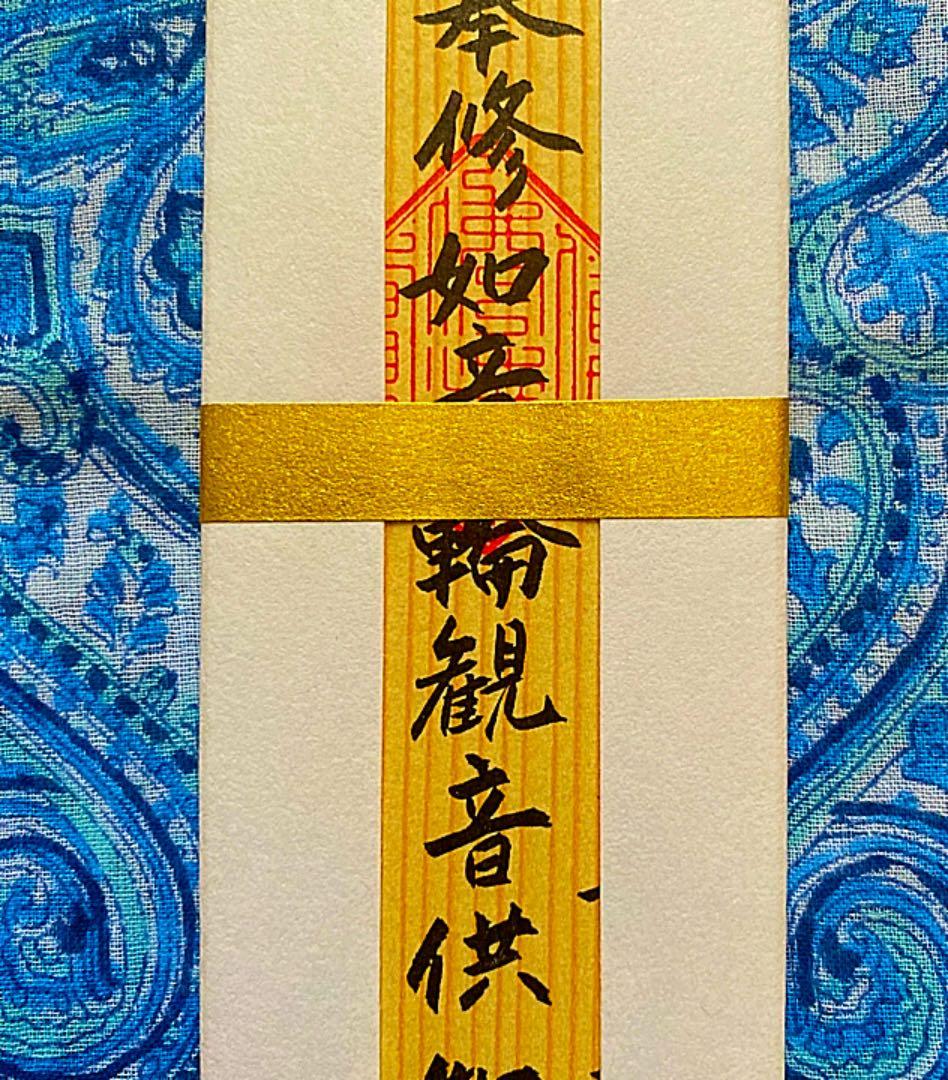 奉修如意輪観音供